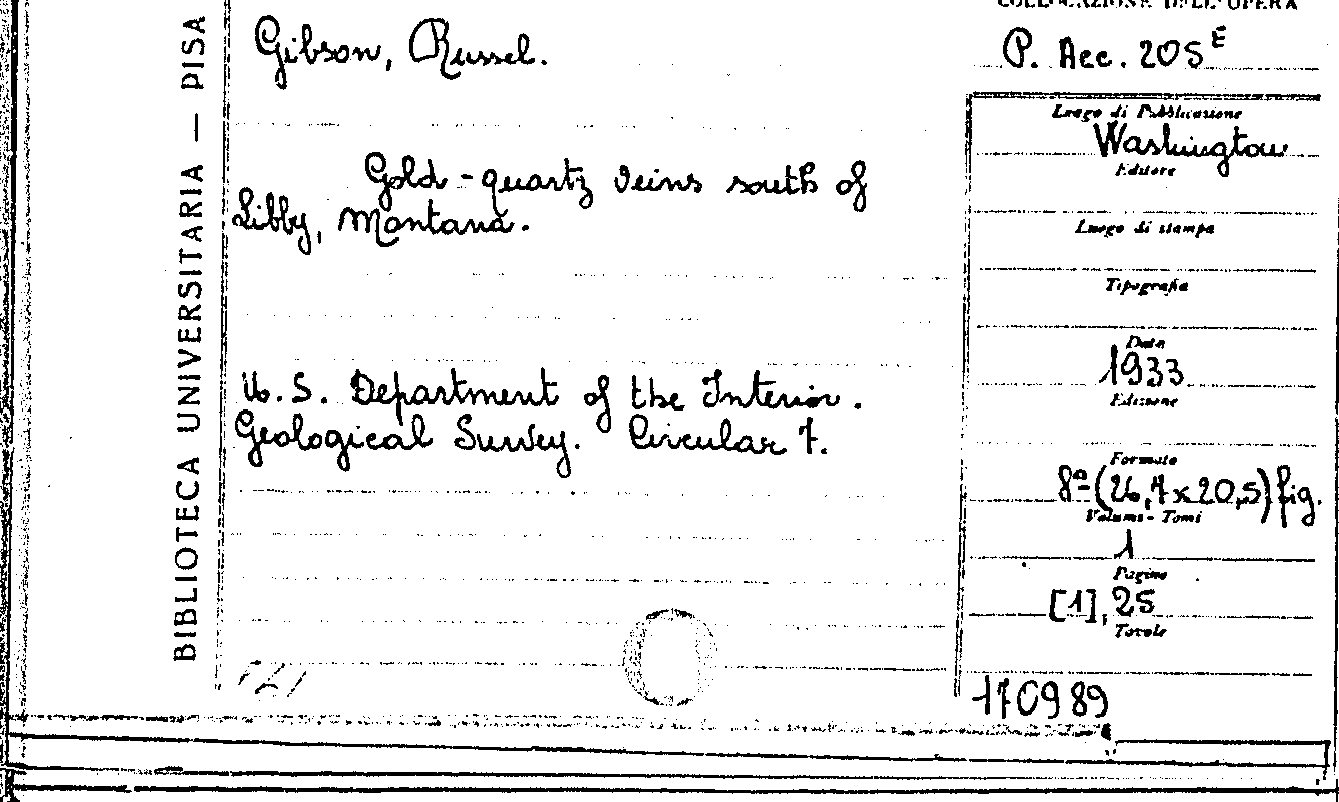 COLLOCAZIONE DELL'OPERA
P. Acc. 205 E
BIBLIOTECA UNIVERSITARIA — PISA
Gibson, Russel.
Gold-quartz veins south of
Libby, Montana.
U. S. Department of the Interior.
Geological Survey. Circular 7.
Luogo di Pubblicazione
Washington
Editore
Luogo di stampa
Tipografia
Data
1933
Edizione
Formato
8º (26,7x20,5) fig.
Volumi - Tomi
1
Pagine
[1], 25
Tavole
170989